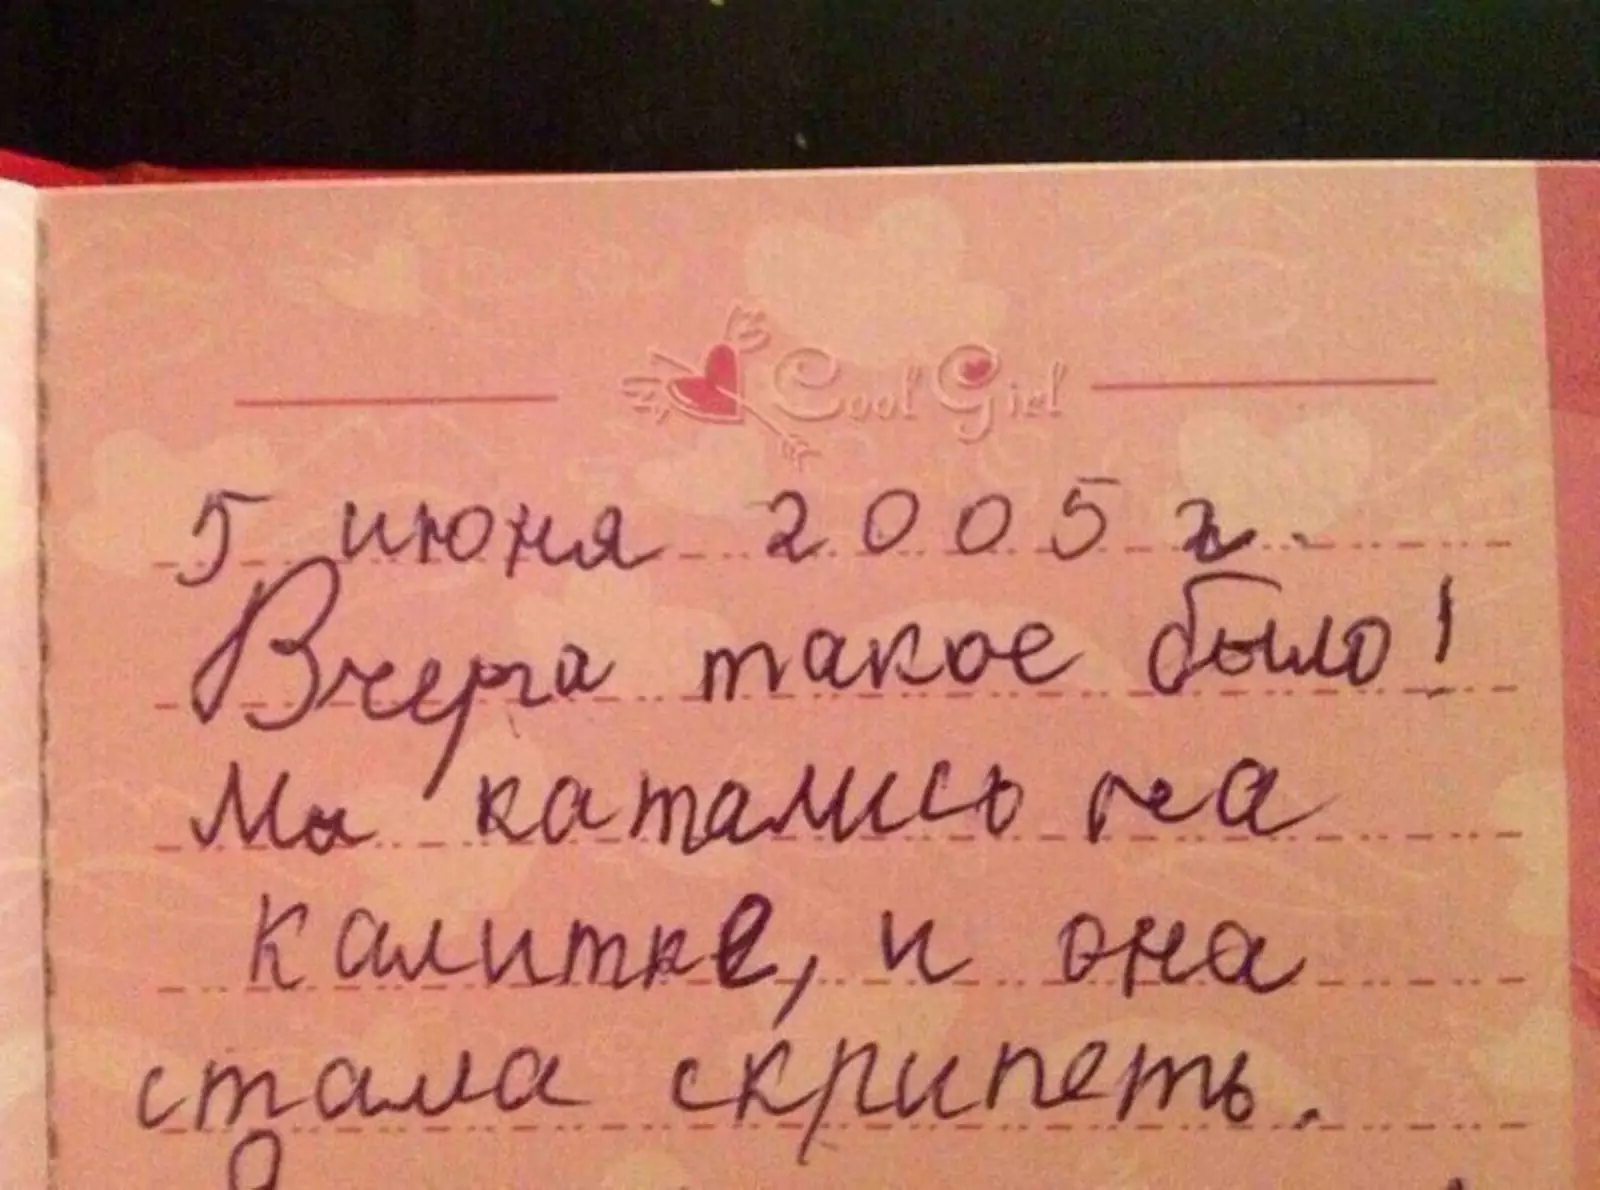 Cool Girl
5 июня 2005 г.
Вчера такое было!
Мы катались на
калитке, и она
стала скрипеть.